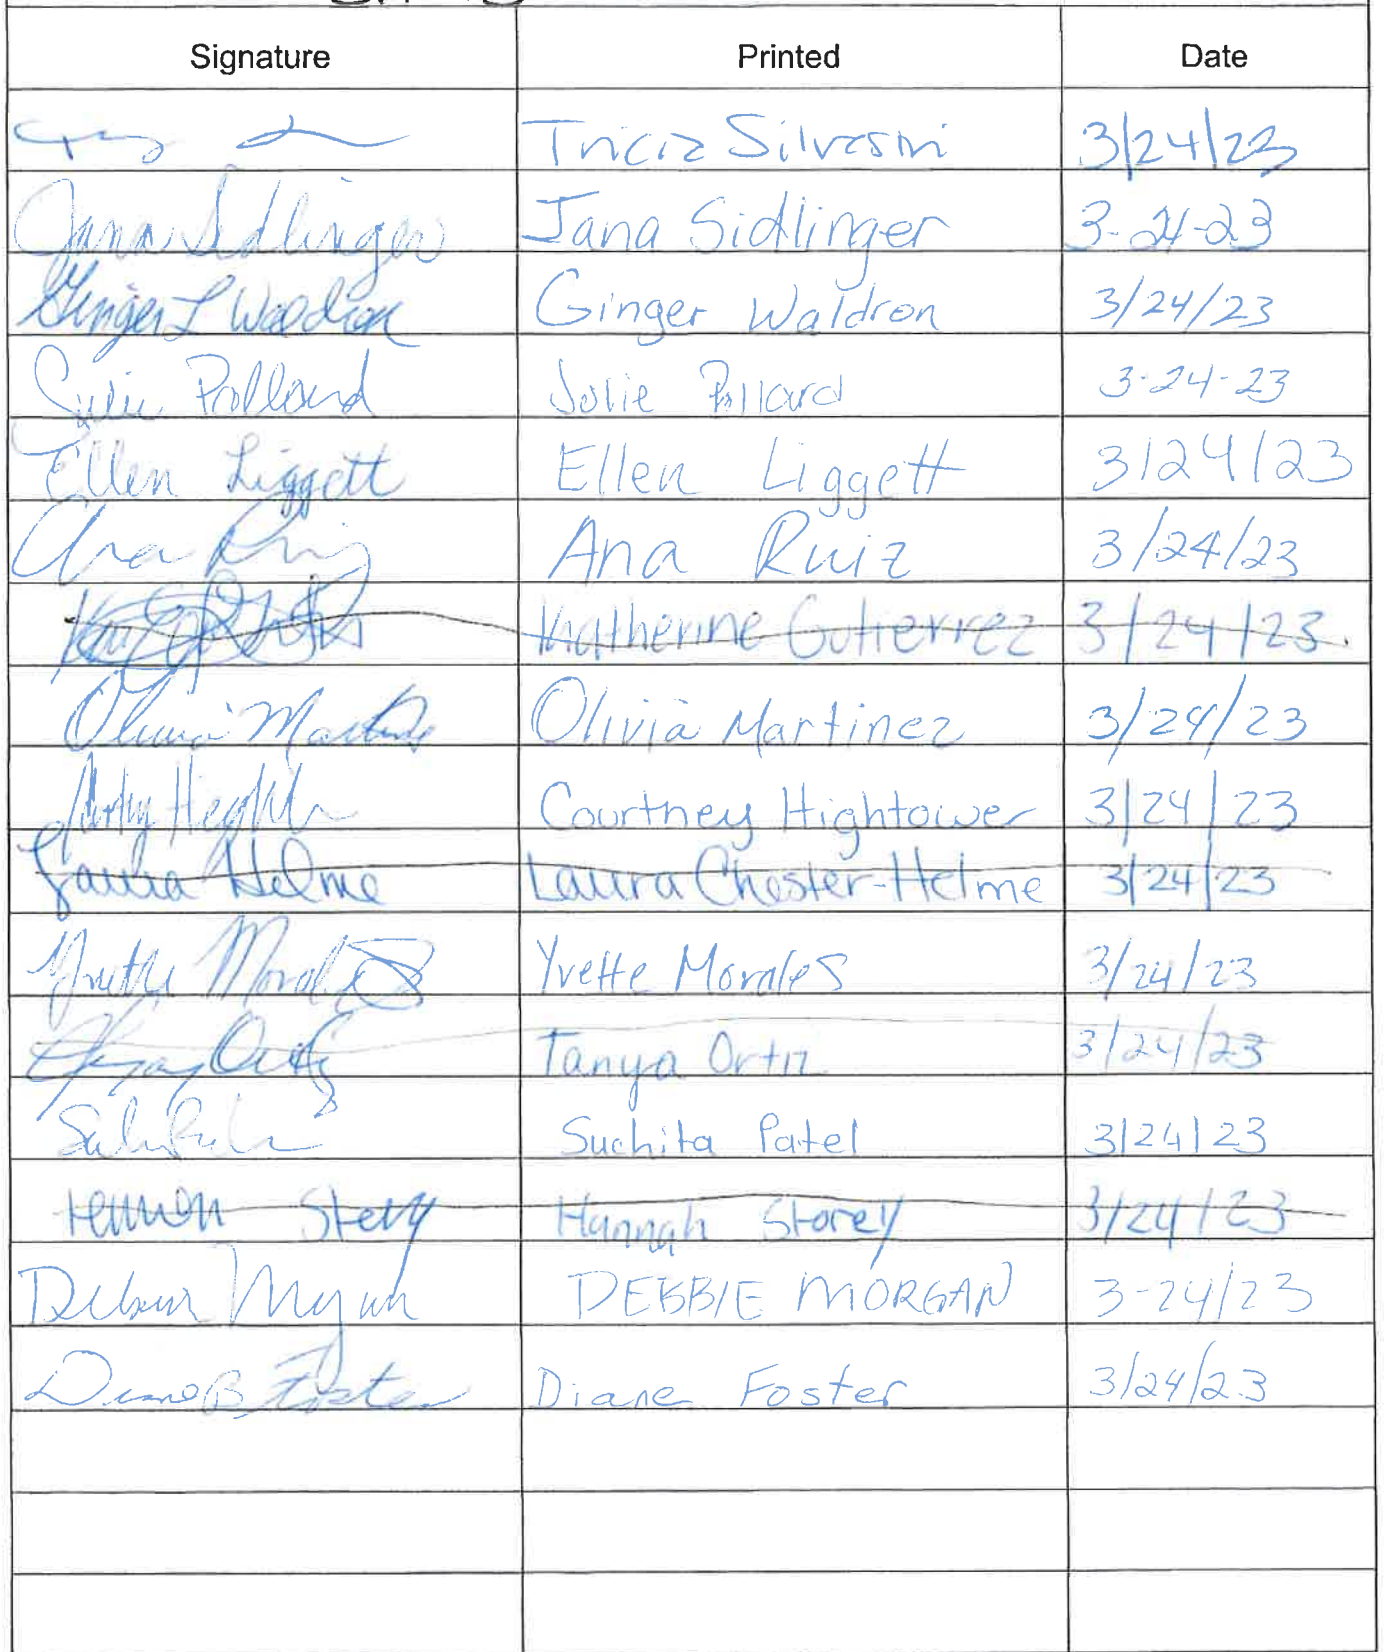 Signature Printed Date
Tricia Silvesmi 3/24/23
Jana Sidlinger Jana Sidlinger 3-24-23
Ginger L Waldron Ginger Waldron 3/24/23
Julie Pollard Julie Pollard 3-24-23
Ellen Liggett Ellen Liggett 3/24/23
Ana Ruiz Ana Ruiz 3/24/23
Katherine Gutierrez 3/24/23
Olivia Martinez Olivia Martinez 3/24/23
Courtney Hightower 3/24/23
Laura Helme Laura Chester-Helme 3/24/23
Yvette Morales Yvette Morales 3/24/23
Tanya Ortiz 3/24/23
Suchita Patel 3/24/23
Hannah Storey 3/24/23
DEBBIE MORGAN 3-24/23
Diane B Foster Diane Foster 3/24/23